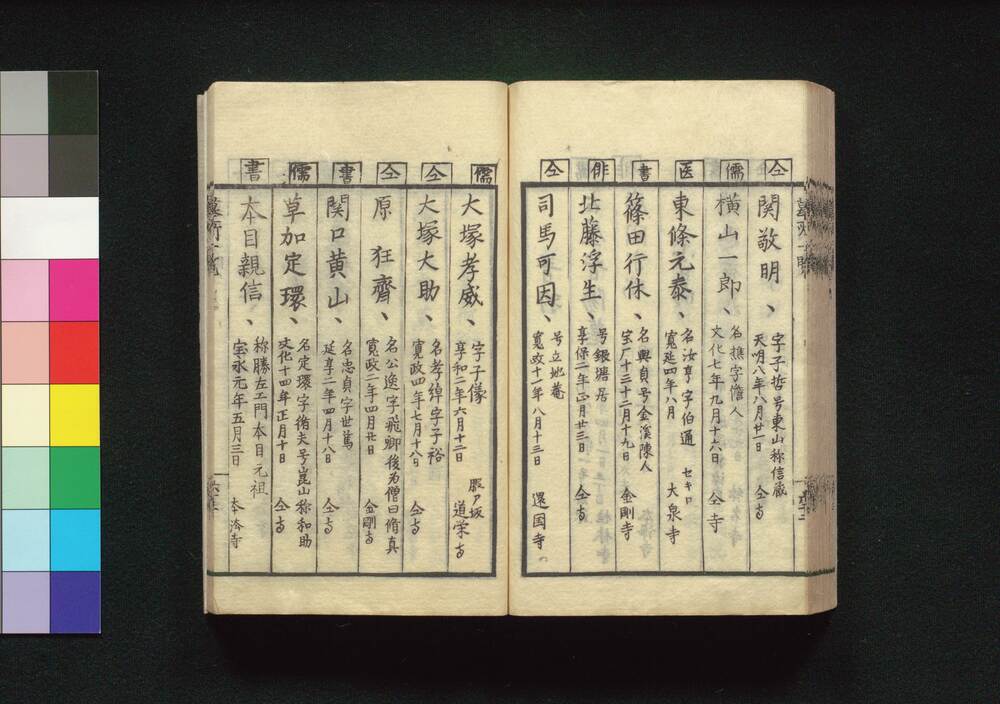 仝
関敬明、
字子哲号東山称信蔵
天明八年八月廿一日
仝寺
儒
横山一郎、
名樵字儋人
文化七年九月十六日
仝寺
医
東條元泰、
名汝亨字伯通
寛延四年八月
セキロ
大泉寺
書
篠田行休、
名興貞号金溪陳人
宝厂十三十二月十九日
金剛寺
俳
北藤浮生、
号銀塘居
享保二年正月廿三日
仝寺
仝
司馬可因、
号立地菴
寛政十一年八月十三日
還国寺
儒
大塚孝威、
字子儀
享和二年六月十二日
道栄寺
仝
大塚大助、
名孝綽字子裕
寛政四年七月十八日
仝寺
仝
原狂齊、
名公逸字飛卿後为僧曰脩真
寛政二年四月廿日
金剛寺
書
関口黄山、
名忠貞字世篤
延享二年四月十八日
仝寺
儒
草加定環、
名定環字脩夫号崑山称和助
文化十四年正月十日
仝寺
書
本目親信、
称勝左エ門本目元祖
宝永元年五月三日
本済寺